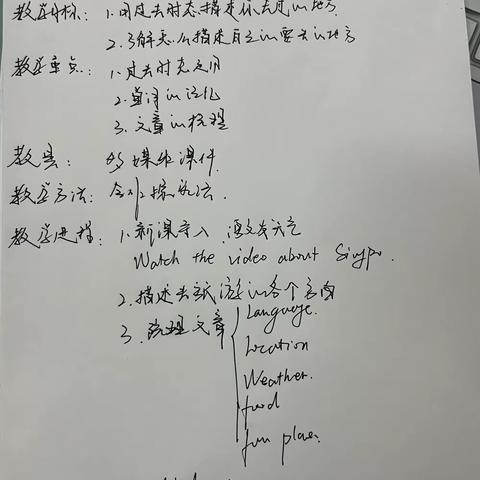 教学目标：1.用过去时态描述你去过的地方.
2.了解怎么描述自己的要去的地方
教学重点：1.过去时态运用
2.单词的记忆
3.文章的梳理
教具：多媒体课件.
教学方法：合作探究法.
教学进程：1.新课导入
Watch the video about
2.描述去旅游的各个方面
3.梳理文章
Language.
Location
Weather.
food
fun place.